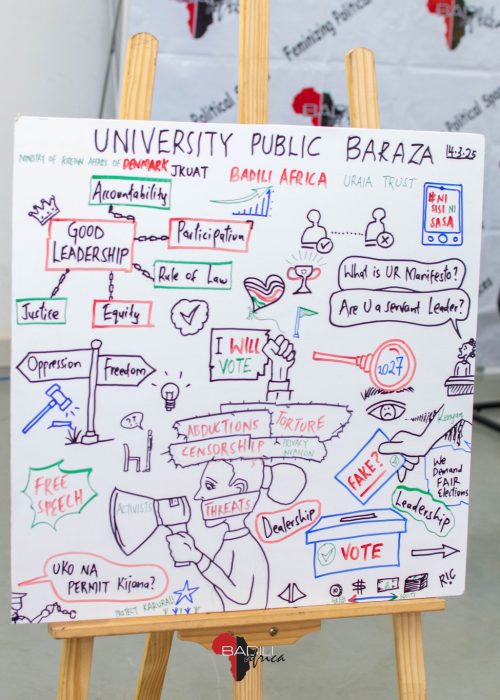 UNIVERSITY PUBLIC BARAZA 14·3·25
MINISTRY OF FOREIGN AFFAIRS OF DENMARK JKUAT BADILI AFRICA URAIA TRUST
Accountability
GOOD
LEADERSHIP
Participation
Rule of Law
Justice
Equity
#NI
SISI NI
SASA
What is UR Manifesto?
Are U a servant Leader?
I WILL
VOTE
2027
Oppression
Freedom
ABDUCTIONS
TORTURE
CENSORSHIP
PRIVACY
INVASION
FREE
SPEECH
ACTIVISTS
THREATS
Dealership
FAKE?
Kenyan
WE
DEMAND
FAIR
Elections
Leadership
VOTE
UKO NA
PERMIT Kijana?
PROTECT KARURA!!
#
RIC
BADILI
africa
Feminizing Political
Political
BADILI